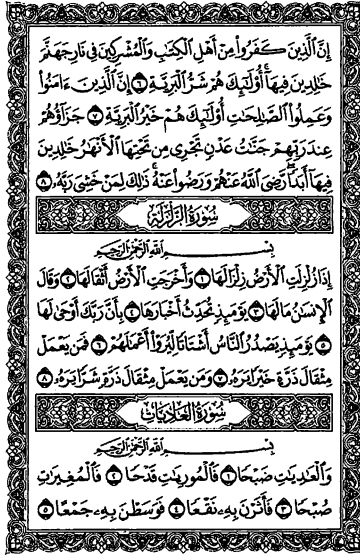 إِنَّ ٱلَّذِينَ كَفَرُوا۟ مِنْ أَهْلِ ٱلْكِتَٰبِ وَٱلْمُشْرِكِينَ فِى نَارِ جَهَنَّمَ
خَٰلِدِينَ فِيهَآ أُو۟لَٰٓئِكَ هُمْ شَرُّ ٱلْبَرِيَّةِ ٦ إِنَّ ٱلَّذِينَ ءَامَنُوا۟
وَعَمِلُوا۟ ٱلصَّٰلِحَٰتِ أُو۟لَٰٓئِكَ هُمْ خَيْرُ ٱلْبَرِيَّةِ ٧ جَزَآؤُهُمْ
عِندَ رَبِّهِمْ جَنَّٰتُ عَدْنٍ تَجْرِى مِن تَحْتِهَا ٱلْأَنْهَٰرُ خَٰلِدِينَ
فِيهَآ أَبَدًا رَّضِىَ ٱللَّهُ عَنْهُمْ وَرَضُوا۟ عَنْهُ ذَٰلِكَ لِمَنْ خَشِىَ رَبَّهُۥ ٨
سُورَةُ الزَّلْزَلَةِ
بِسْمِ ٱللَّهِ ٱلرَّحْمَٰنِ ٱلرَّحِيمِ
إِذَا زُلْزِلَتِ ٱلْأَرْضُ زِلْزَالَهَا ١ وَأَخْرَجَتِ ٱلْأَرْضُ أَثْقَالَهَا ٢ وَقَالَ
ٱلْإِنسَٰنُ مَا لَهَا ٣ يَوْمَئِذٍ تُحَدِّثُ أَخْبَارَهَا ٤ بِأَنَّ رَبَّكَ أَوْحَىٰ لَهَا
٥ يَوْمَئِذٍ يَصْدُرُ ٱلنَّاسُ أَشْتَاتًا لِّيُرَوْا۟ أَعْمَٰلَهُمْ ٦ فَمَن يَعْمَلْ
مِثْقَالَ ذَرَّةٍ خَيْرًا يَرَهُۥ ٧ وَمَن يَعْمَلْ مِثْقَالَ ذَرَّةٍ شَرًّا يَرَهُۥ ٨
سُورَةُ العَادِيَاتِ
بِسْمِ ٱللَّهِ ٱلرَّحْمَٰنِ ٱلرَّحِيمِ
وَٱلْعَٰدِيَٰتِ ضَبْحًا ١ فَٱلْمُورِيَٰتِ قَدْحًا ٢ فَٱلْمُغِيرَٰتِ
صُبْحًا ٣ فَأَثَرْنَ بِهِۦ نَقْعًا ٤ فَوَسَطْنَ بِهِۦ جَمْعًا ٥